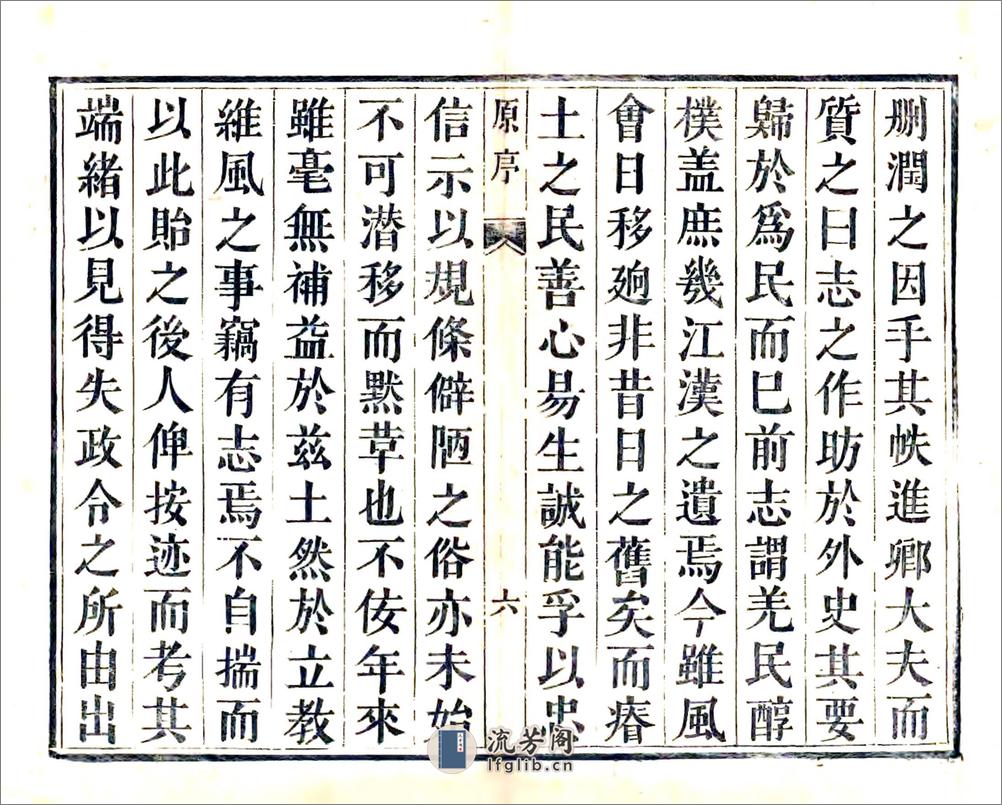 刪潤之因手其帙進鄉大夫而
質之曰志之作昉於外史其要
歸於爲民而已前志謂羌民醇
樸盖庶幾江漢之遺焉今雖風
會日移逈非昔日之舊矣而瘠
土之民善心易生誠能孚以忠
原序
六
信示以規條僻陋之俗亦未始
不可潜移而默革也不佞年來
雖毫無補益於兹土然於立教
維風之事竊有志焉不自揣而
以此貽之後人俾按迹而考其
端緒以見得失政令之所由出
流芳阁
lfglib.cn